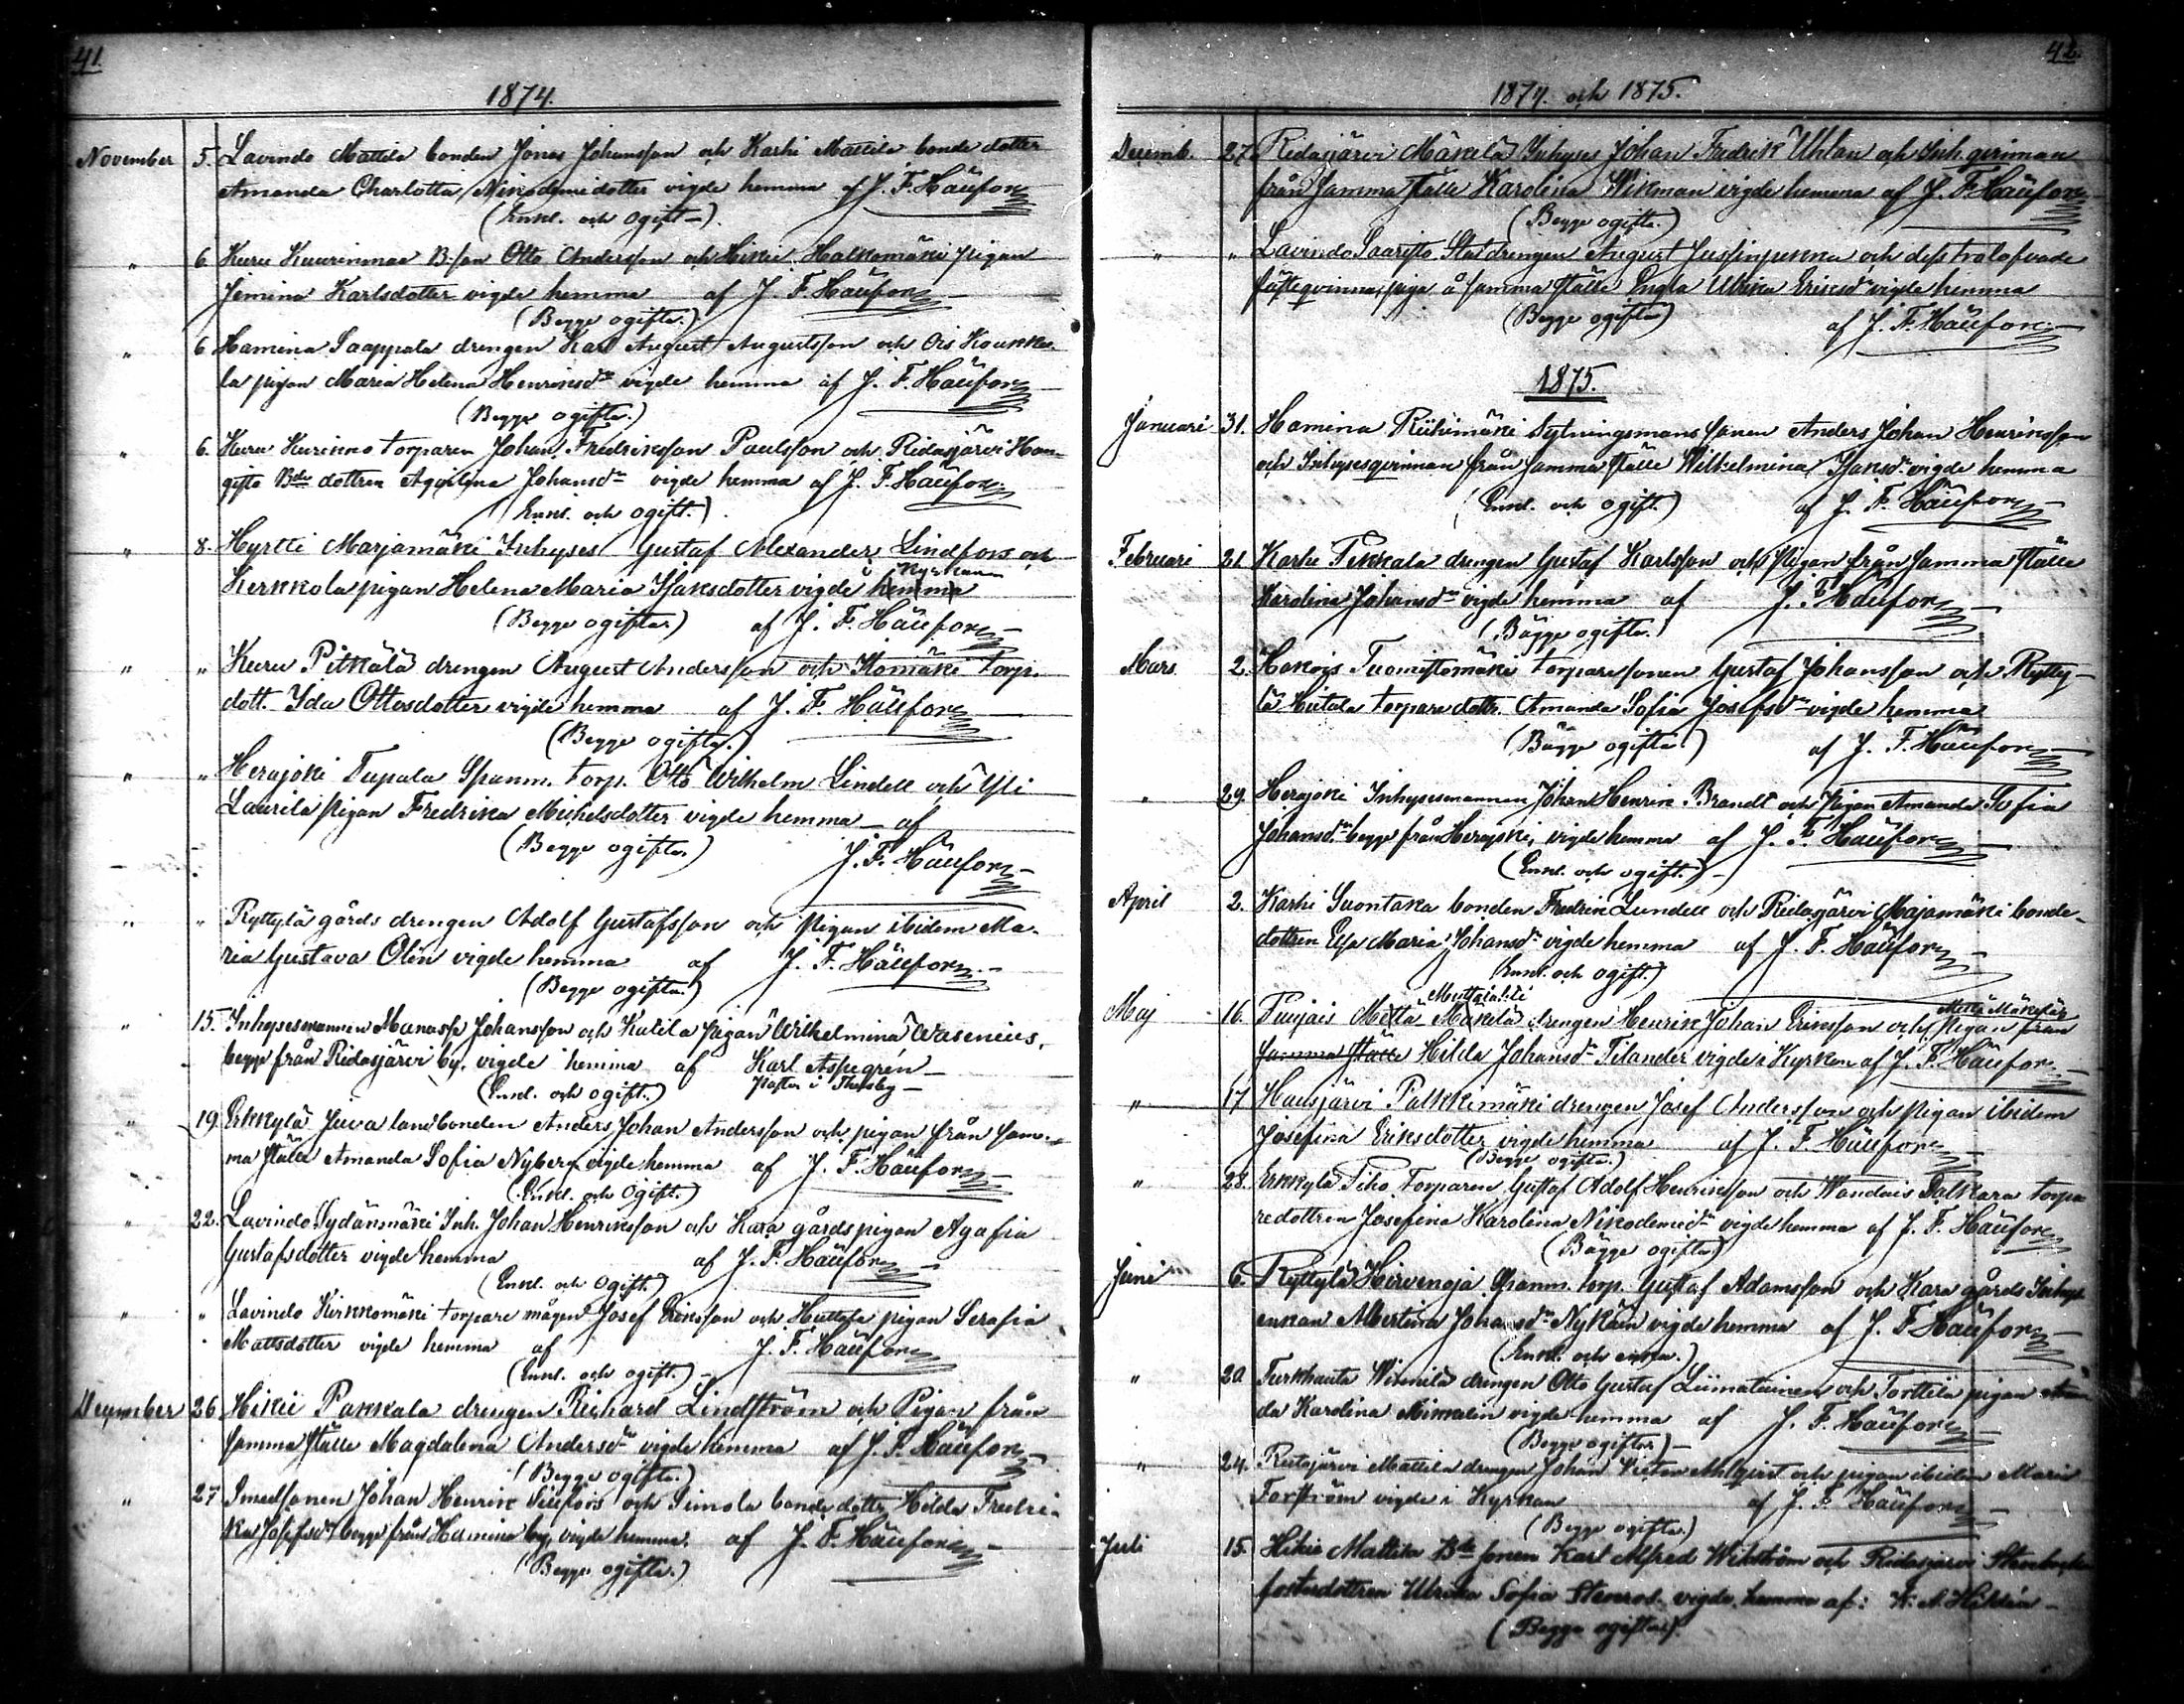 41.
1874.
November 5. Lavindo Mattila bonden Jonas Johansson och Karhi Mattila bonde dotter
Amanda Charlotta Nikodemidotter vigde hemma af J. F. Häufors
(Enkl. och ogift.)
" 6. Kuru Kuurinmaa B:son Otto Andersson och Hikiä Halkomäki pigan
Jemina Karlsdotter vigde hemma af J. F. Häufors
(Begge ogifta.)
" 6. Hamina Saappala drengen Karl August Augustsson och Ois Koukku-
la pigan Maria Helena Henriksdr vigde hemma af J. F. Häufors
(Begge ogifta.)
" 6. Kuru Kurikko torparen Johan Fredriksson Paulsson och Ridasjärvi
Bde dottren Aqvilina Johansdr vigde hemma af J. F. Häufors
(Enkl. och ogift.)
" 8. Hyrtti Marjamäki Inhyses Gustaf Alexander Lindfors och
i Kyrkan
Kerkkola pigan Helena Maria Isaksdotter vigde hemma
(Begge ogifta) af J. F. Häufors
" " Kuru Pitkälä drengen August Andersson och Komäki Torp.
dott. Ida Ottosdotter vigde hemma af J. F. Häufors
(Begge ogifta.)
" " Herajoki Tupala Spanm. torp. Otto Wilhelm Lindell och Yli
Laurila pigan Fredrika Michelsdotter vigde hemma af
(Begge ogifta.) J. F. Häufors
" " Ryttylä gårds drengen Adolf Gustafsson och pigan ibidem Ma-
ria Gustava Olin vigde hemma af J. F. Häufors
(Begge ogifta.)
" 15. Inhysesmannen Manasse Johansson och Katila pigan Wilhelmina Wasenius,
begge från Ridasjärvi by, vigde hemma af Karl Aspegrén
(Enkl. och ogift.) Pastor i Thusby
" 19. Erkkylä Juva landbonden Anders Johan Andersson och pigan från sam-
ma ställe Amanda Sofia Nyberg vigde hemma af J. F. Häufors
(Enkl. och Ogift.)
" 22. Lavindo Sydänmäki Inh. Johan Henriksson och Kara gårds pigan Agafia
Gustafsdotter vigde hemma af J. F. Häufors
(Enkl. och Ogift.)
" " Lavindo Kirkkomäki torpare mågen Josef Eriksson och pigan Serafia
Mattsdotter vigde hemma af J. F. Häufors
(Enkl. och ogift.)
December 26 Hikiä Pakkala drengen Richard Lindström och Pigan från
samma ställe Magdalena Andersdr vigde hemma af J. F. Häufors
(Begge ogifta.)
" 27 Smedsonen Johan Henrik och Simola bonde dottr. Hilda Fredri-
ka Josefsdr begge från Hamina by, vigde hemma af J. F. Häufors
(Begge ogifta.)
42.
1874. och 1875.
Decemb. 27. Ridasjärvi Mäkelä Inhyses Johan Fredrik Uhlan och Inh.qvinnan
från samma ställe Karolina Wikman vigde hemma af J. F. Häufors
(Begge ogifta.)
" " Lavindo Saaristo Statdrengen August Jussinpekka och dess trolofvade
fästeqvinna, piga å samma ställe Engla Ulrika Eriksdr vigde hemma
(Begge ogifta) af J. F. Häufors
1875.
Januari 31. Hamina Riihimäki Sytningsmans sonen Anders Johan Henriksson
och Inhysesqvinnan från samma ställe Wilhelmina Isaksdr vigde hemma
(Enkl. och ogift.) af J. F. Häufors
Februari 21. Karhi Pekkala drengen Gustaf Karlsson och Pigan från samma ställe
Karolina Johansdr vigde hemma af J. F. Häufors
(Bägge ogifta.)
Mars 2. Hakois Tuomistomäki torparesonen Gustaf Johansson och Rytty-
lä Hietala torparedottr. Amanda Sofia Josefsdr vigde hemma
(Bägge ogifta.) af J. F. Häufors
" 29. Herajoki Inhysesmannen Johan Henrik Brandt och pigan Amanda Sofia
Johansdr begge från Herajoki, vigde hemma af J. F. Häufors
(Enkl. och ogift.)
April 2. Karhi Suontaka bonden Fredrik Lundell och Ridasjärvi Majamäki bonde-
dottren Eva Maria Johansdr vigde hemma af J. F. Häufors
(Enkl. och ogift.)
Maj 16. Mettä Mäkelä drengen Henrik Johan Eriksson och Pigan från
samma ställe Hilda Johansdr Tilander vigde i Kyrkan af J. F. Häufors
" 17 Hausjärvi Palkkimäki drengen Josef Andersson och pigan ibidem
Josefina Eriksdotter vigde hemma af J. F. Häufors
(Begge ogifta.)
" 28. Erkkylä Torparen Gustaf Adolf Henriksson och Wandais torpa
redottren Josefina Karolina Nikodemidr vigde hemma af J. F. Häufors
(Bägge ogifta)
Juni 6. Ryttylä Hirvenoja Spanm. torp. Gustaf Adamsson och Kara gårds Inhys.
enkan Albertina Johansdr Nykän vigde hemma af J. F. Häufors
(Enkl. och enka.)
" 20. Turkhauta Wiinilä drengen Otto Gustaf Liimatainen och Torttila pigan
da Karolina vigde hemma af J. F. Häufors
(Begge ogifta)
" 24. Ridasjärvi Mattila drengen Johan Victor Ahlqvist och pigan ibidem Maria
Forsström vigde i Kyrkan af J. F. Häufors
(Begge ogifta.)
Juli 15. Hikiä Mattila Bde sonen Karl Alfred Wikström och Ridasjärvi
fosterdottren Ulrika Sofia Stenros vigde hemma af:
(Begge ogifta).